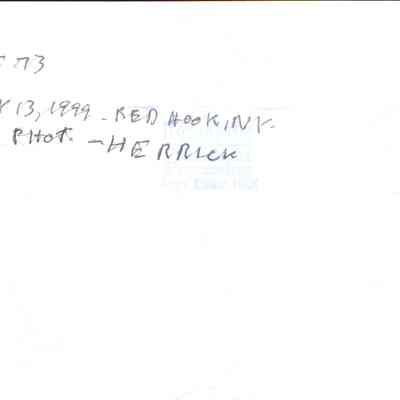 773
13, 1999 - RED HOOK, NY.
PHOT. - HERRICK